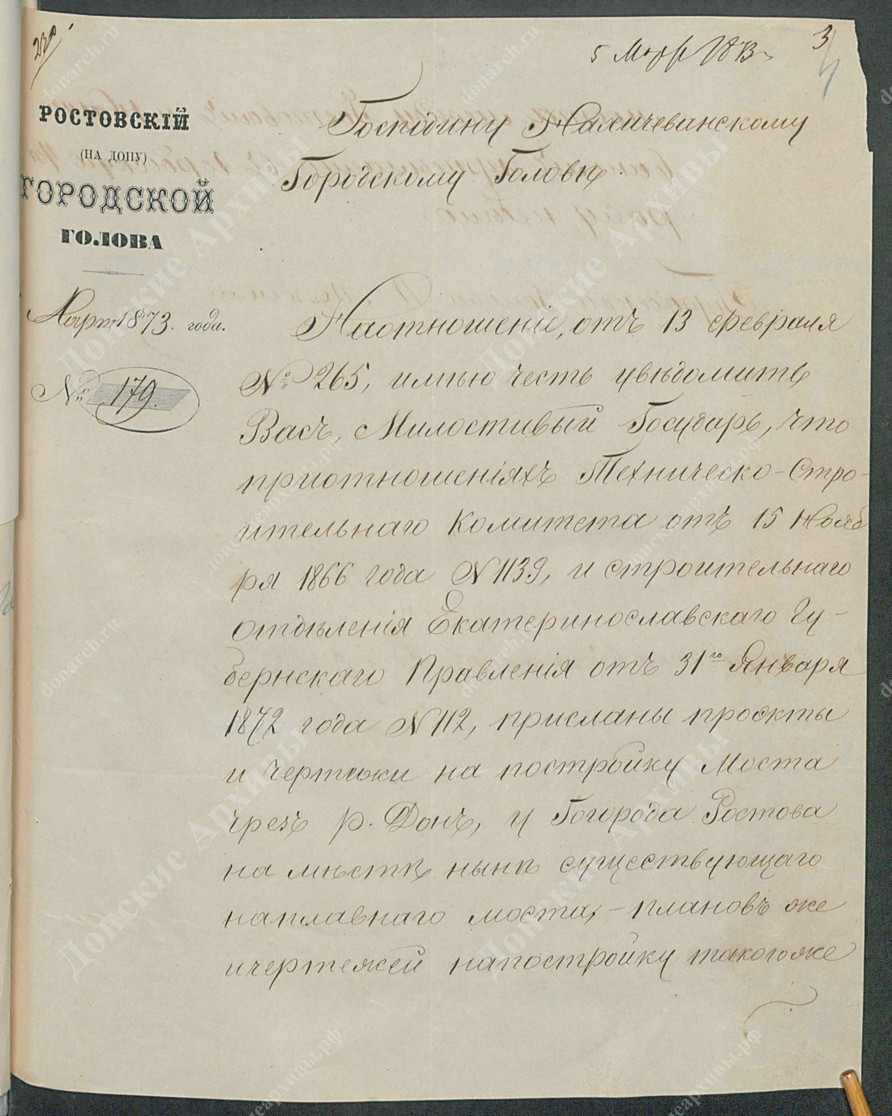 5 Март 1873
3
РОСТОВСКІЙ
(НА ДОНУ)
ГОРОДСКОЙ
ГОЛОВА
Марта 1873. года.
№ 179.
Господину Нахичеванскому
Городскому Головѣ.
Наотношеніе, отъ 13 февраля
№ 265, имѣю честь увѣдомить
Васъ, Милостивый Государь, что
приотношеніяхъ Техническо-Стро-
ительнаго Комитета отъ 15 Нояб
ря 1866 года N 1139, и строительнаго
отдѣленія Екатеринославскаго Гу-
бернскаго Правленія отъ 31го Января
1872 года N 112, присланы проэкты
и чертежи на постройку Моста
чрезъ р. Донъ, у Города Ростова
на мѣстѣ нынѣ существующаго
наплавнаго моста, – плановъ же
ичертежей напостройку такогоже
Донские Архивы
донскиеархивы.рф
donarch.ru